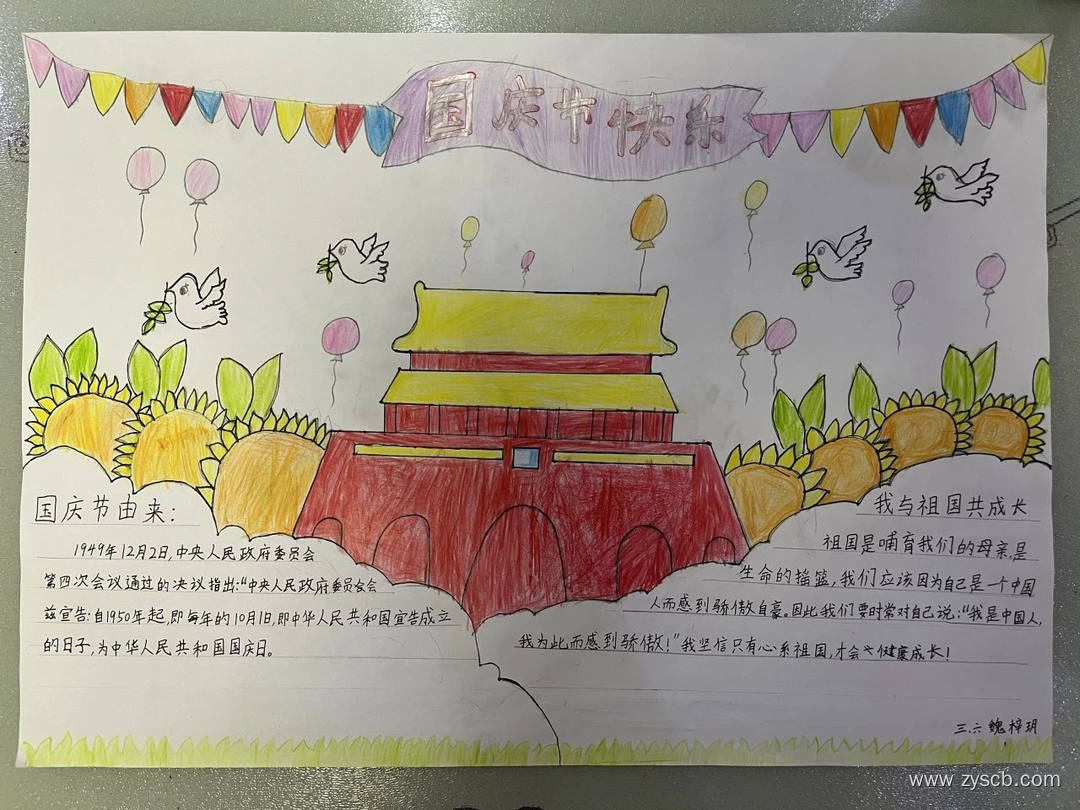 国庆节快乐
国庆节由来:
1949年12月2日,中央人民政府委员会
第四次会议通过的决议指出:“中央人民政府委员会
兹宣告:自1950年起,即每年的10月1日,即中华人民共和国宣告成立
的日子,为中华人民共和国国庆日。
我与祖国共成长
祖国是哺育我们的母亲,是
生命的摇篮,我们应该因为自己是一个中国
人而感到骄傲自豪。因此我们要时常对自己说:“我是中国人,
我为此而感到骄傲!”我坚信只有心系祖国,才会健康成长!
三.六 魏梓玥
www.zyscb.com